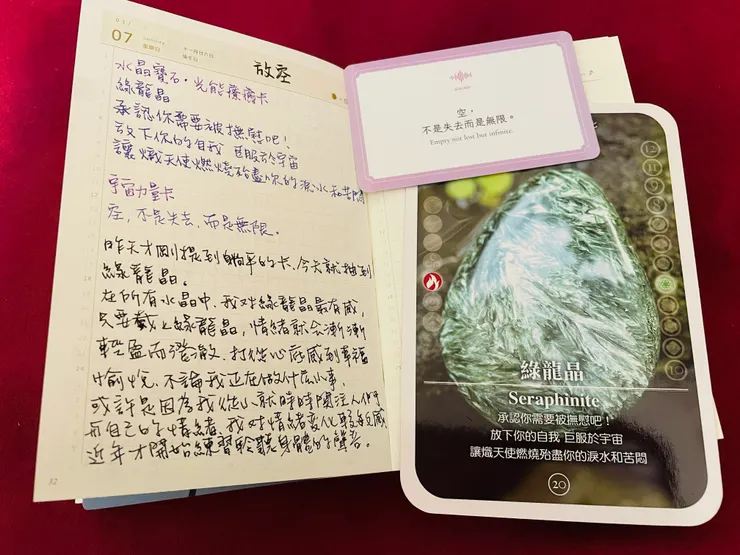 07
星期日
十一月廿六日
放空
水晶寶石・光能療癒卡
綠龍晶
承認你需要被撫慰吧！
放下你的自我 臣服於宇宙
讓熾天使燃燒殆盡你的淚水和苦悶
宇宙力量卡
空，不是失去，而是無限。
昨天才剛提到的卡，今天就抽到
綠龍晶。
在所有水晶中，我對綠龍晶最有感，
只要戴上綠龍晶，情緒就會漸漸
輕盈而澄澈，打從心底感到幸福
愉悅，不論我正在做什麼小事。
或許是因為我從小就時時關注人們
而自己的情緒，我對情緒變化較有感
近年才開始練習聆聽身體的聲音。
32
空，
不是失去而是無限。
Empty not lost but infinite.
綠龍晶
Seraphinite
承認你需要被撫慰吧！
放下你的自我 巨服於宇宙
讓熾天使燃燒殆盡你的淚水和苦悶
20